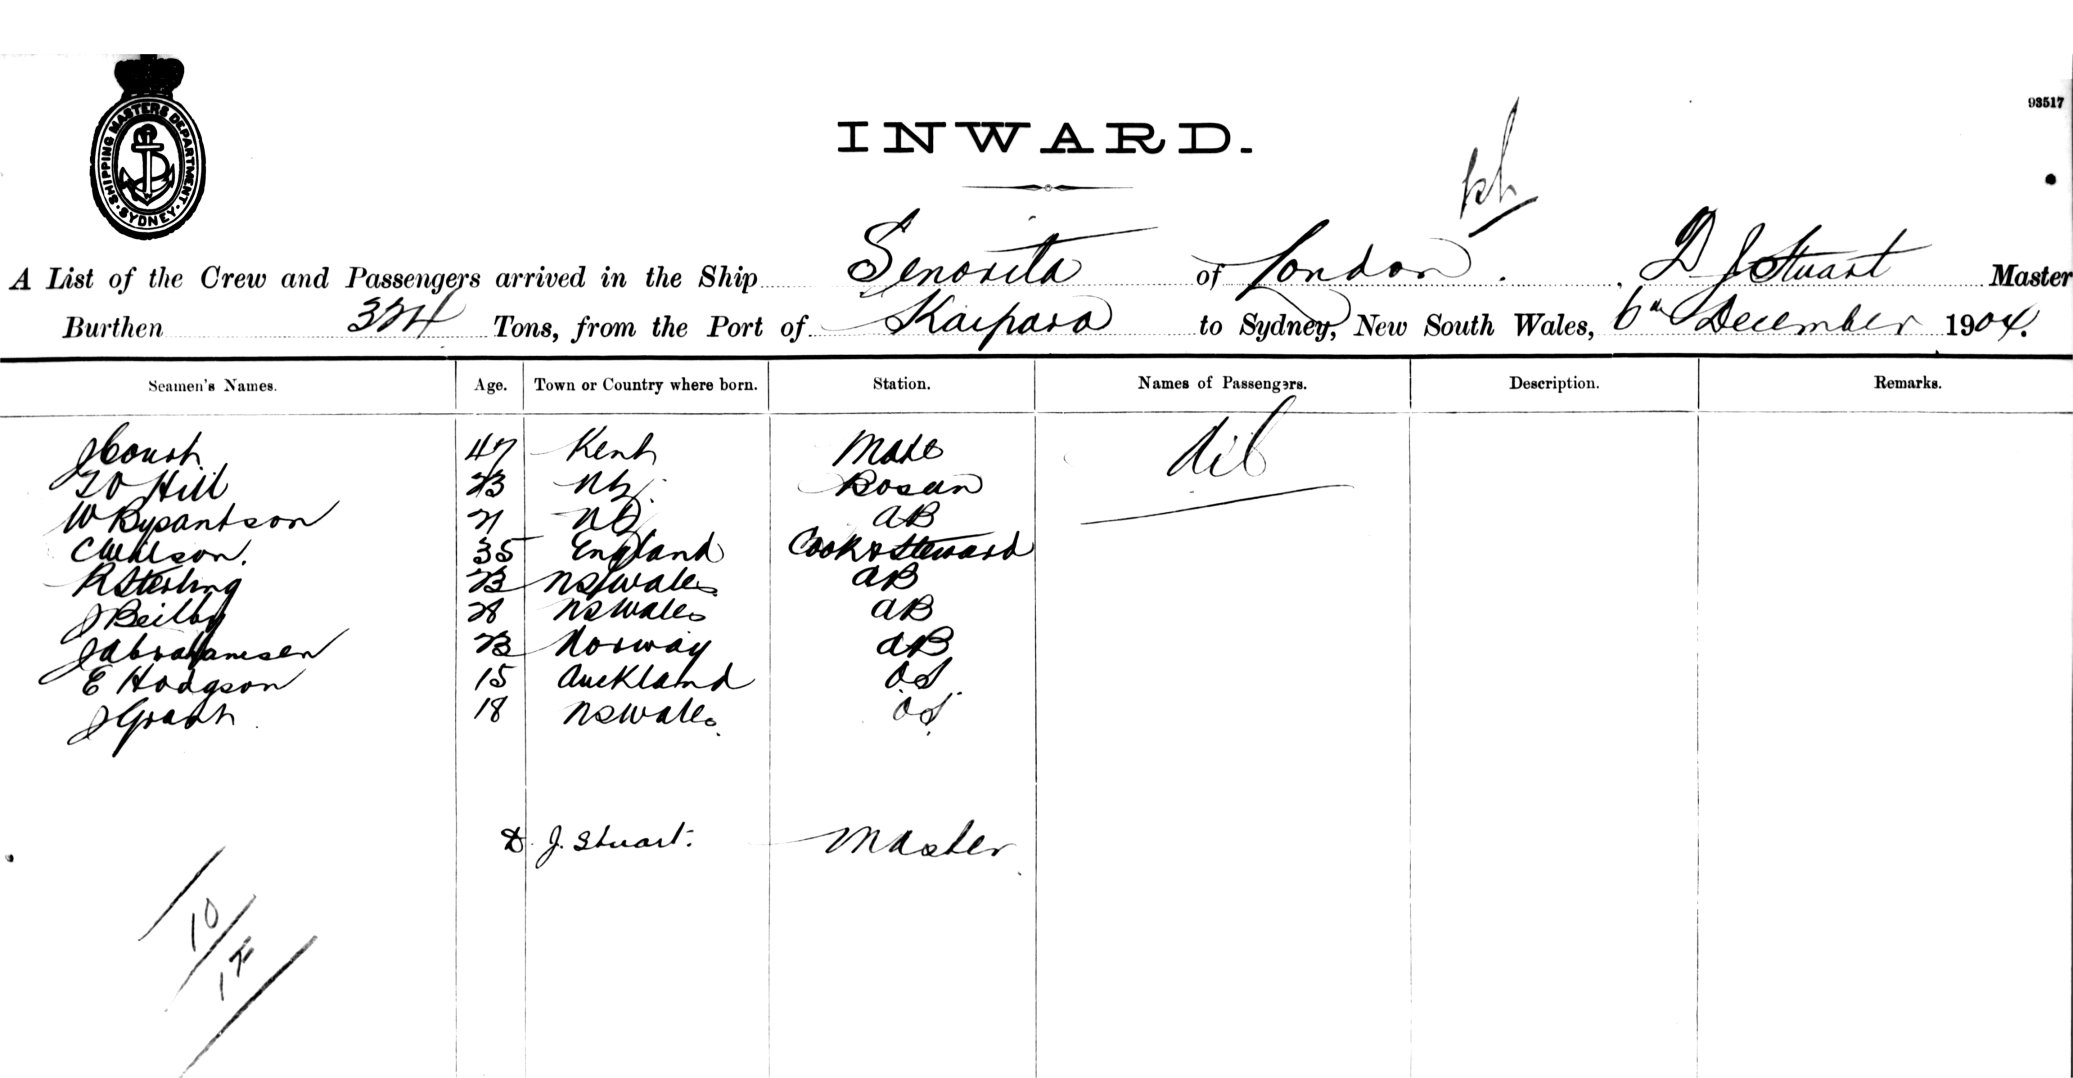 SHIPPING MASTERS DEPARTMENT. SYDNEY.
93517
INWARD.
A List of the Crew and Passengers arrived in the Ship Senorita of London. D J Stuart Master
Burthen 324 Tons, from the Port of Kaipara to Sydney, New South Wales, 6th December 1904.
Seamen's Names. Age. Town or Country where born. Station. Names of Passengers. Description. Remarks.
47 Kent Mate Nil
Hill 23 NZ. Bosun
W Bysantson 21 NZ AB
35 England Cook & Steward
R Sterling 23 NSWales AB
J Beilby 28 NSWales AB
J Abrahamsen 23 Norway AB
E Hodgson 15 Auckland OS
J Grant 18 NSWales OS
D. J. Stuart. Master
10